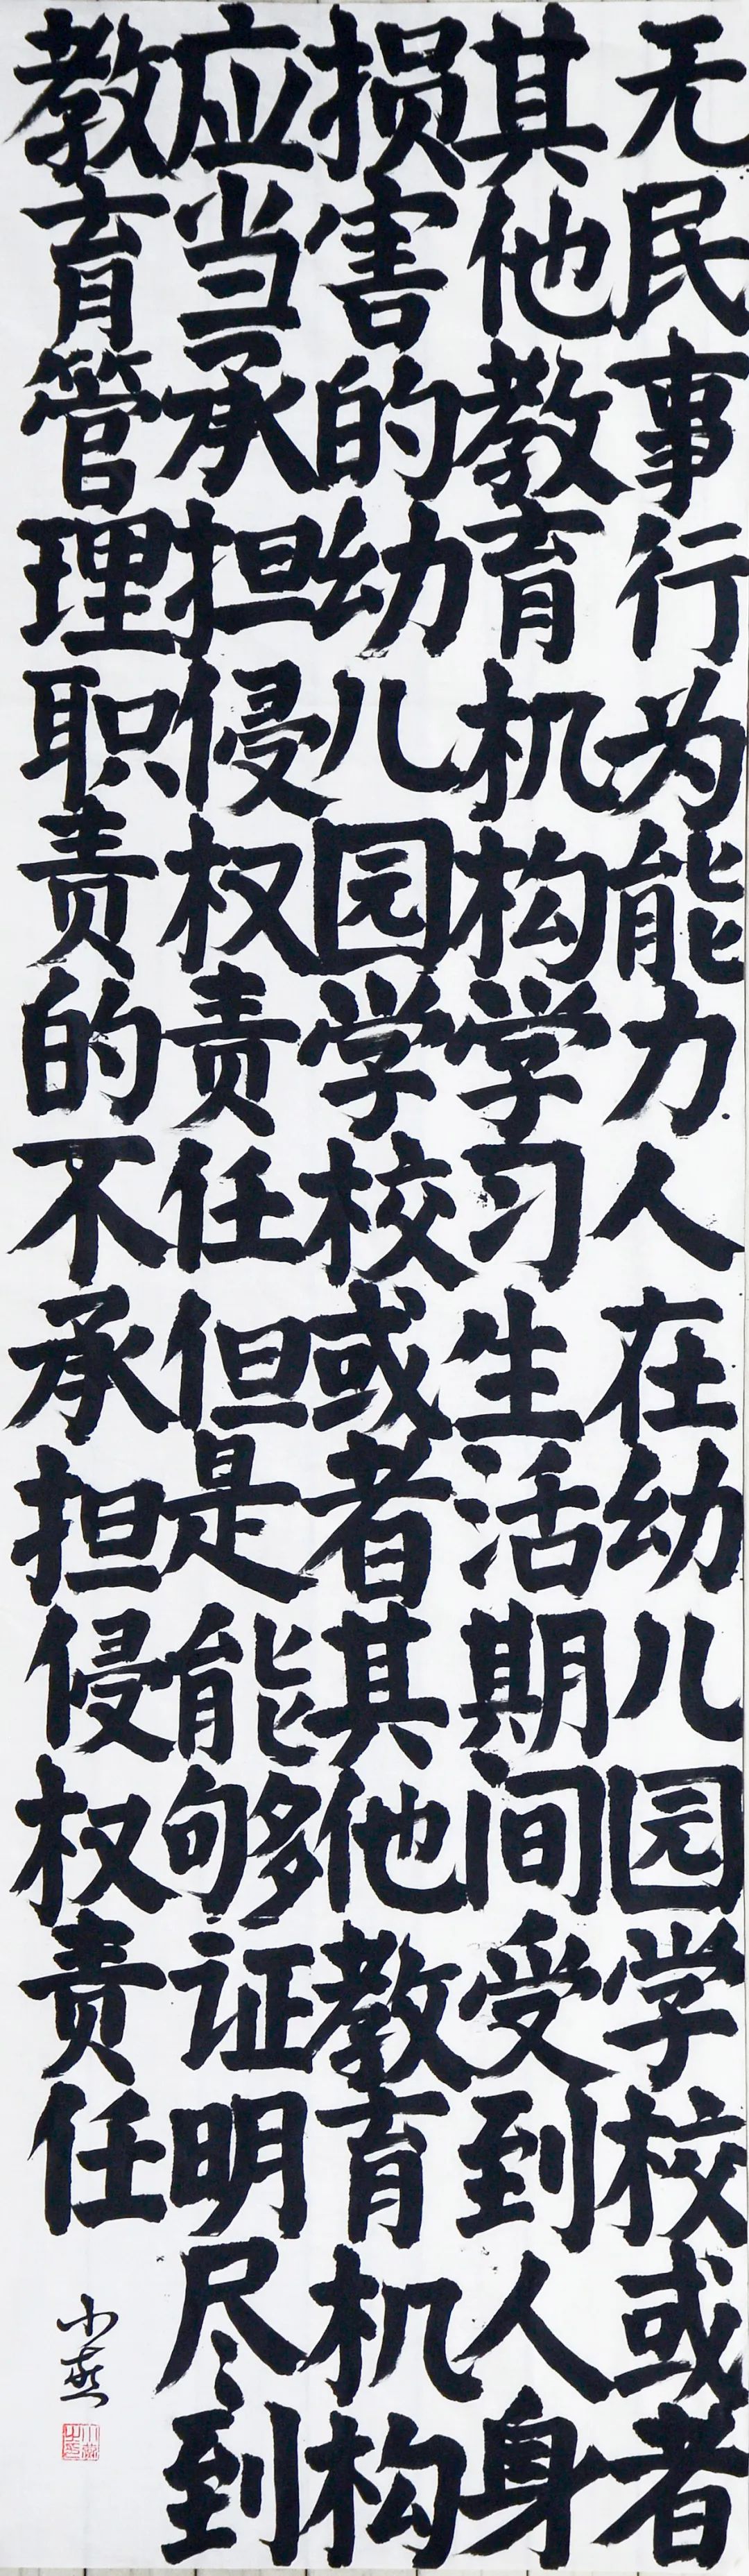 无民事行为能力人在幼儿园学校或者
其他教育机构学习生活期间受到人身
损害的幼儿园学校或者其他教育机构
应当承担侵权责任但是能够证明尽到
教育管理职责的不承担侵权责任
小燕